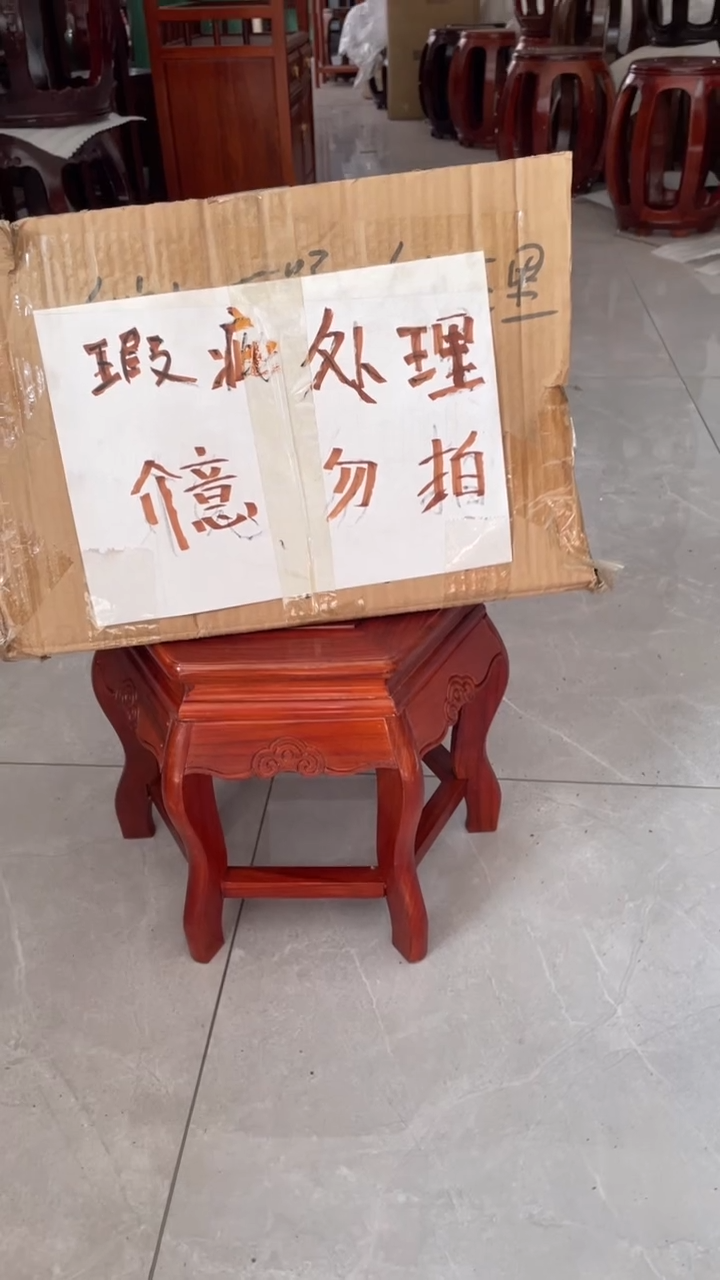 瑕疵处理
介意勿拍
理